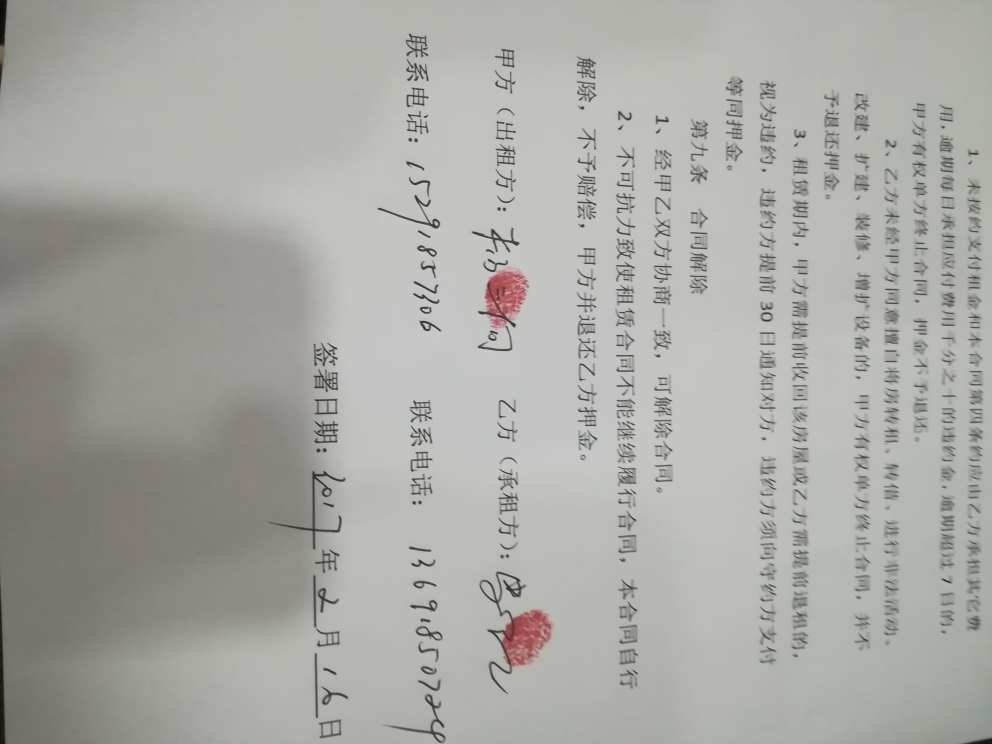 1、未按约支付租金和本合同第四条约应由乙方承担其它费
用，逾期每日承担应付费用千分之十的违约金，逾期超过 7 日的，
甲方有权单方终止合同，押金不予退还。
2、乙方未经甲方同意擅自将房转租、转借、进行非法活动、
改建、扩建、装修、增扩设备的，甲方有权单方终止合同，并不
予退还押金。
3、租赁期内，甲方需提前收回该房屋或乙方需提前退租的，
视为违约，违约方提前 30 日通知对方，违约方须向守约方支付
等同押金。
第九条 合同解除
1、经甲乙双方协商一致，可解除合同。
2、不可抗力致使租赁合同不能继续履行合同，本合同自行
解除，不予赔偿，甲方并退还乙方押金。
甲方（出租方）： 乙方（承租方）：
联系电话：15291857306 联系电话：13691850724
签署日期：2017年2月16日